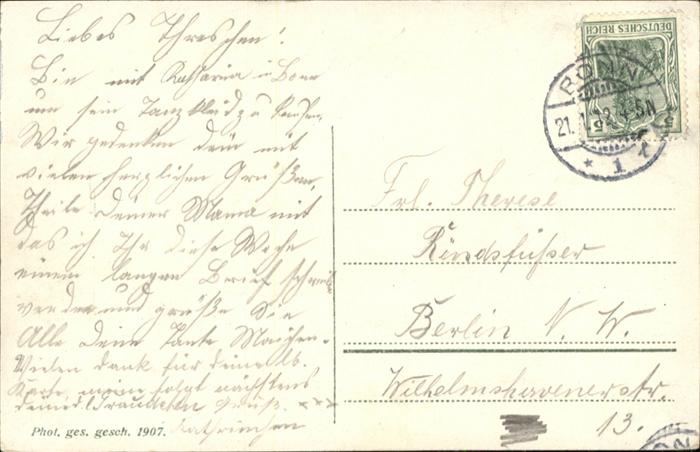 Liebes Threschen!
Bin mit Katharina in Bonn
um sein Tanzkleid zu kaufen.
Wir gedenken dein mit
vielen herzlichen Grüßen,
Theile deiner Mama mit
das ich Ihr diese Woche
einem langen Brief schreiben
werden und grüße Sie
Alle Deine Tante
Vielen dank für deine lb.
Karte, meine folgt nächstens
Gruß. xxx
Kathrinchen
Phot. ges. gesch. 1907.
DEUTSCHES REICH
5
BONN
21.1. 4-5N
* 1
Frl. Therese
Rindsfüßer
Berlin N. W.
Wilhelmshavenerstr.
13.